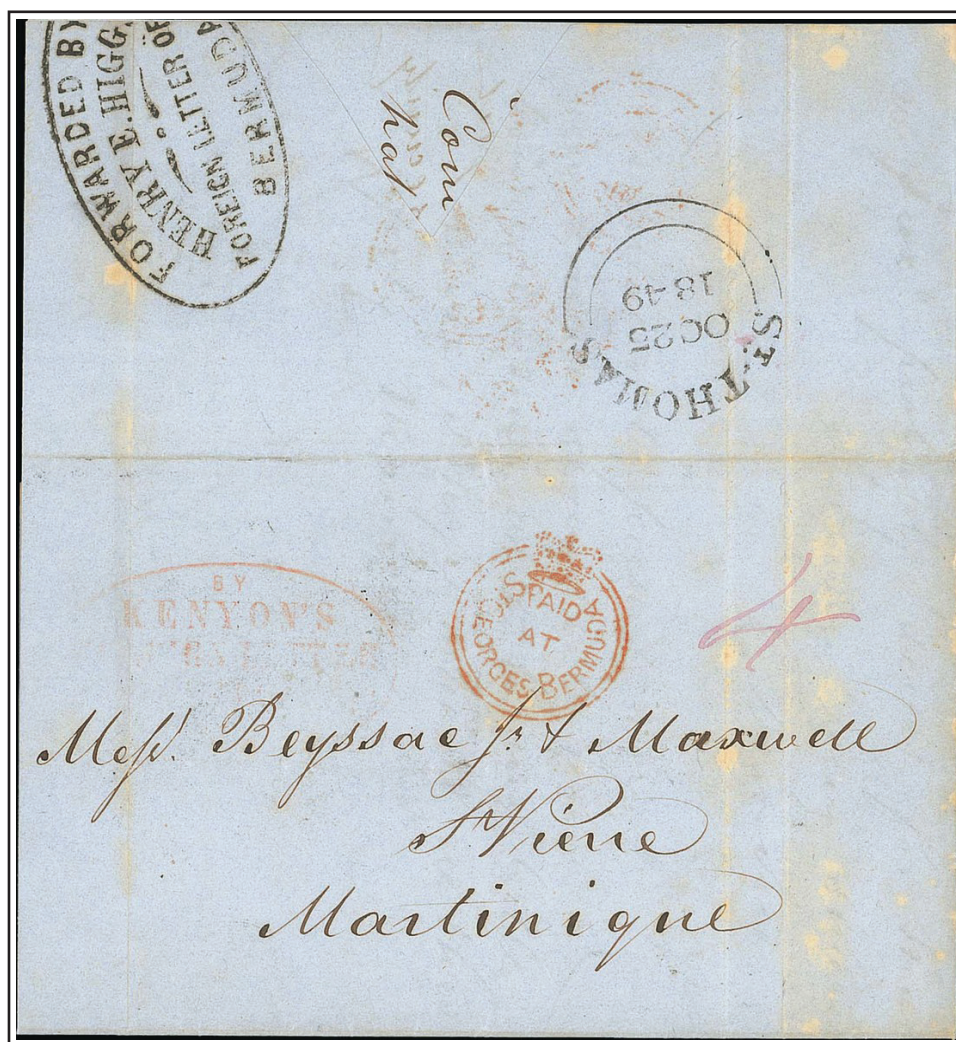 FORWARDED BY
HENRY E. HIGG
FOREIGN LETTER OF
BERMUDA
Com
hat
ST. THOMAS
OC 25
1849
BY
KENYON'S
LETTER
PAID
AT
ST GEORGES BERMUDA
4
Messrs. Beyssac Jr. & Maxwell
St. Pierre
Martinique